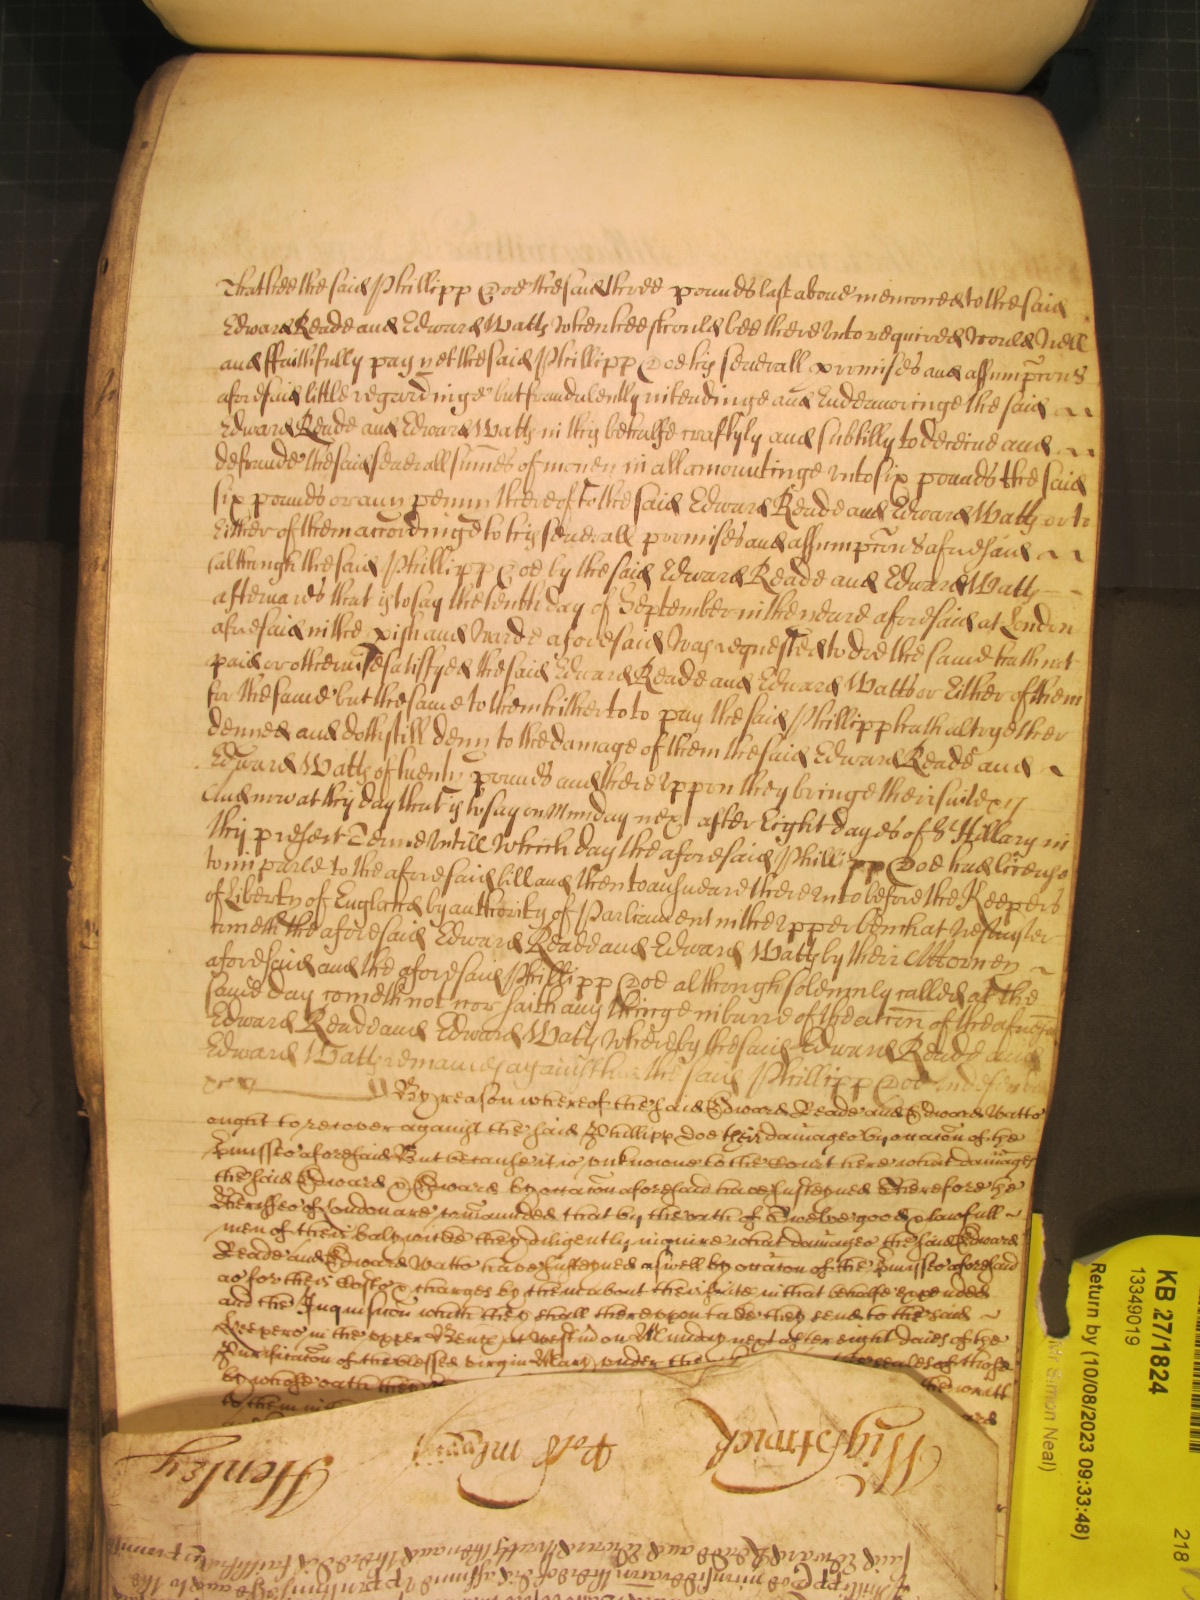 That hee the said Phillipp Coe the said three pounds last aboue menconed to the said
Edward Reade and Edward Watts when hee should bee there vnto required would well
and ffaithfully pay yet the said Phillipp Coe his seuerall promises and assumpcons
aforesaid little regardinge but fraudulently intendinge and Endeavoringe the said
Edward Reade and Edward Watts in this behalfe craftyly and subtilly to deceive and
defraude the said seuerall summes of money in all amountinge vnto six pounds the said
six pounds or any penny thereof to the said Edward Reade and Edward Watts or to
Either of them accordinge to his seuerall promises and assumpcons aforesaid
(although the said Phillipp Coe by the said Edward Reade and Edward Watts
afterwards that is to say the tenth day of September in the yeare aforesaid at London
aforesaid in the pish and Warde aforesaid was requested to doe the same hath not
paid or otherwise satisfyed the said Edward Reade and Edward Watts or Either of them
for the same but the same to them hitherto to pay the said Phillipp hath altogether
denyed and doth still deny to the damage of them the said Edward Reade and
Edward Watts of twenty pounds and there vppon they bringe their suite &c
And now at this day that is to say on Munday next after Eight dayes of St Hillary in
this present Terme vntill which day the aforesaid Phillipp Coe had licence
to imparle to the aforesaid bill and then to answeare there vnto before the Keepers
of Liberty of England by authority of Parliament in the vpper bench at Westmster
cometh the aforesaid Edward Reade and Edward Watts by their Attorney
aforesaid and the aforesaid Phillipp Coe although solemnly called at the
same day cometh not nor saith any thinge in barre of the accon of the aforesaid
Edward Reade and Edward Watts whereby the said Edward Reade and
Edward Watts remaines against him the said Phillipp Coe
By reason whereof the said Edward Reade and Edward Watts
ought to recover against the said Phillipp Coe their damages by occacon of the
pmisses aforesaid But because it is vnknowne to the Court here what damages
the said Edward & Edward by occacon aforesaid have susteyned Therefore the
Sheriffes of London are commanded that by the oath of Twelve good & lawfull
men of their balywicke they diligently inquire what damages the said Edward
Reade and Edward Watts have susteyned aswell by occacon of the pmisses aforesaid
as for their Costs & charges by them about their suite in that behalfe expended
and the Inquisicon which they shall thereupon take they send to the said
Keepers in the vpper Bench at Westm on Munday next after eight daies of the
Purificacon of the blessed virgin Mary under the seales of those
by whose oath the writt
to them
Wightwick
Henley
KB 27/1824
13349019
Return by (10/08/2023 09:33:48)
Simon Neal)
218